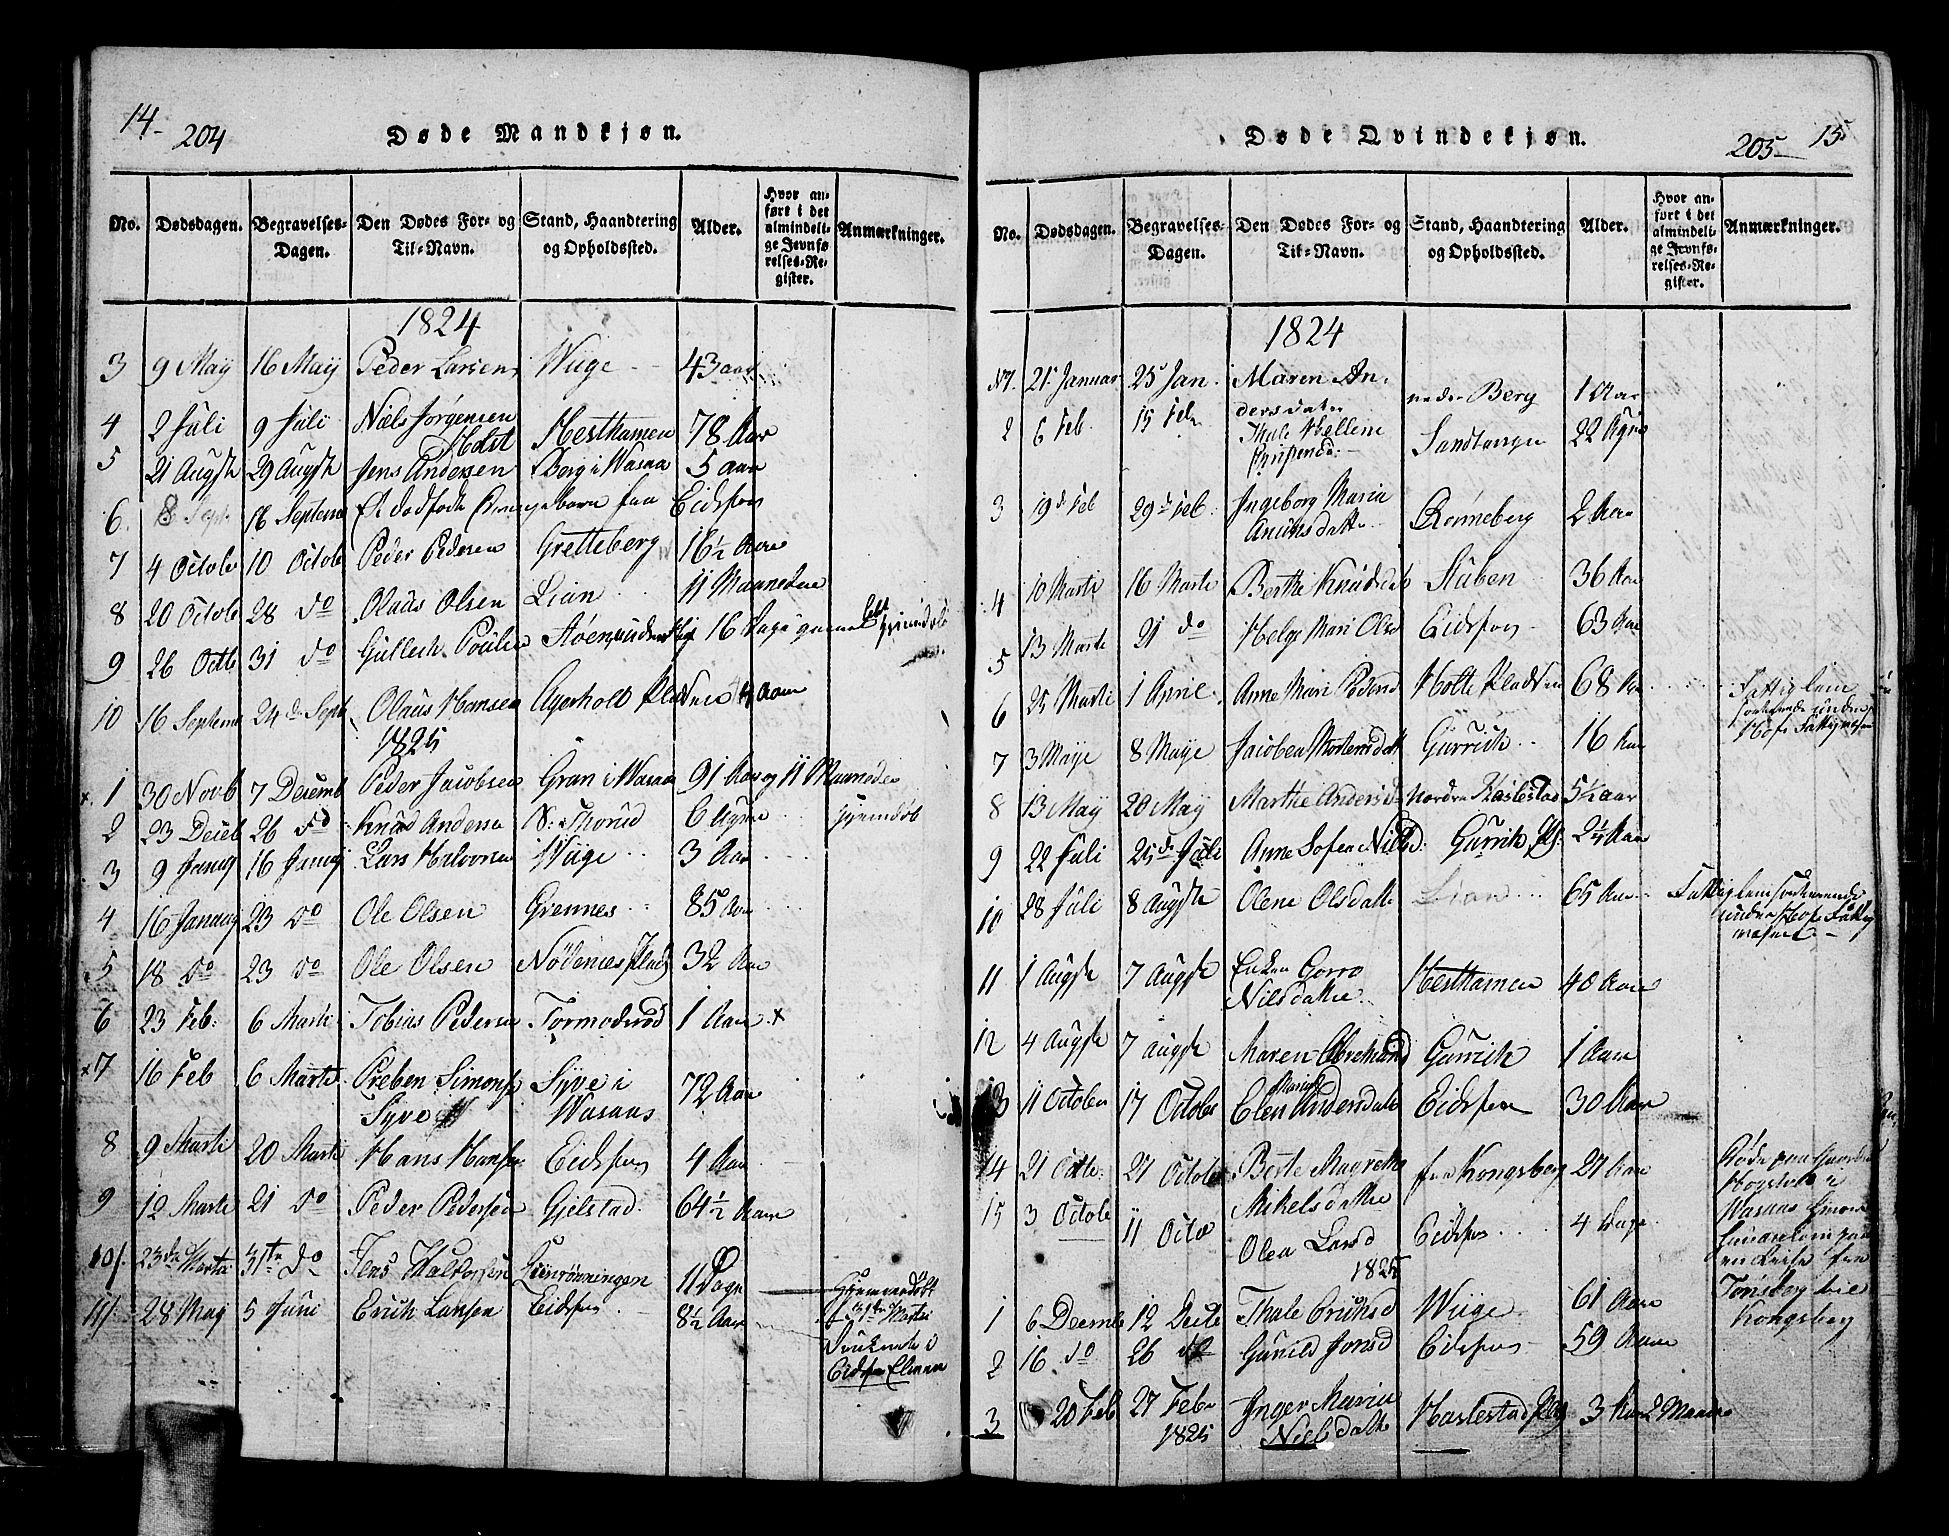 14-
204
Døde Mandkjøn.
No. Dødsdagen. Begravelses-Dagen. Den Dødes For- og Til-Navn. Stand, Haandtering og Opholdssted. Alder. Hvor anført i det almindelige Jevnførelses-Register. Anmærkninger.
1824
3 9 May 16 May Peder Larsen Wiige 43 aar
4 2 Juli 9 Juli Niels Jørgensen Holst Hesthamen 78 Aar
5 21 Augst 29 Augst Jens Andersen Berg i Wasaas 5 aar
6. 8 Sept. 16 Septemb Et dødfødt Drengebarn fra Eidsfos
7 4 Octob 10 Octob Peder Pedersen Gretteberg 16½ Aar
8 20 Octob 28 do Olaus Olsen Lian 11 Maaneder
9 26 Octb 31 do Gullech Poulsen 16 Dage hjemdøbt
10 16 Septemb 24de Sept Olaus Hansen Agerholt Pladsen Aar
1825
1 30 Novb 7 Decemb Peder Jacobsen Gran i Wasaas 91 Aar og 11 Maaneder
2 23 Deceb 26 do Knud Anders S: Thorud 6 Uger hjemdøb
3 9 Januar 16 Januar Lars Halvorsen Wiige 3 Aar
4 16 Januar 23 do Ole Olsen Grennes 85 Aar
5 18 do 23 do Ole Olsen Nødenes Plads 32 Aar
6 23 Feb: 6 Marti Tobias Pedersen Tormodsrød 1 Aar x
x 7 16 Feb 6 Marti Preben Simons Syve Syve i Wasaas 72 Aar
8 9 Marti 20 Marti Hans Hansen Eidsfos 4 Aar
9 12 Marti 21 do Peder Pedersen Gjelstad 64½ Aar
10/. 23de Marti 31te do Jens Halvorsen 11 Dage Hjemmedøbt
11/. 28 May 5 Juni Erich Larsen Eidsfos 8½ Aar Druknede i Eidsfos Elven
Døde Qvindekjøn.
205 15
No. Dødsdagen. Begravelses-Dagen. Den Dødes For- og Til-Navn. Stand, Haandtering og Opholdssted. Alder. Hvor anført i det almindelige Jevnførelses-Register. Anmærkninger.
1824
N1. 21 Januar 25 Jan. Maren Andersdater neder Berg 1 Aar
2 6 Feb 15 Feb Thale Hellene Sandtangen 22 Uger
3 19d Feb 29d Feb. Ingeborg Maria Rønneberg 2 Aar
4 10 Marti 16 Marti Berthe Knudsdat Stuben 36 Aar
5 13 Marti 21 do Helge Mari Olsd Eidsfos 63 Aar
6 25 Marti 1 April Anne Mari Pedersd Holte Pladsen 68 Aar Fattiglem sorterende under Hofs Fattigvesen
7 3 Maye 8 Maye Jacobea Mortensdatt Gurrich 16 Aar
8 13 May 20 May Marthe Andersd Nordre Haslestad 5½ aar
9 22 Juli 25de Juli Anne Sofea Nilsd. Gurrich Pls: 2¼ Aar
10 28 Juli 8 Augst Olene Olsdatte Lian 65 Aar Fattiglem sorterende under Hofs Fattigvesen
11 1 Augst 7 Augst Goro Nilsdatter Hesthamen 40 Aar
12 4 Augst 7 Augst Maren Abrahamsd Gurrich 1 Aar
13 11 Octobr 17 Octobr Elen Maria Andersdatt Eidsfos 30 Aar
14 21 Octbe. 27 Octobr Berte Magrethe Mikelsdatter fra Kongsberg 27 Aar Døde paa Gaarden Wasaas paa en Reise fra Tønsberg til Kongsberg
15 3 Octob 11 Octo Olea Larsd Eidsfos 4 Dage
1825
1 6 Decemb 12 Deceb Thale Erichsd Wiige 61 Aar
2 16 do 26 do Gunild Jonsd Eidsfos 59 Aar
3 20 Feb 27 Febr 1825 Inger Maria Nielsdatt Haslestad Plds 3 Aar 2 Maane